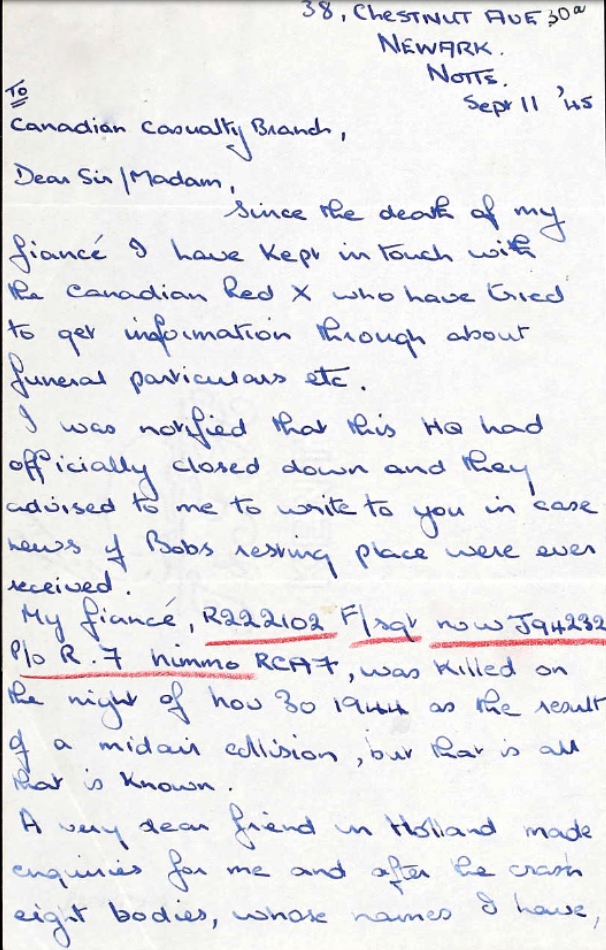 38, CHESTNUT AVE 30a
NEWARK.
NOTTS.
Sept 11 '45
To
Canadian Casualty Branch,
Dear Sir/Madam,
Since the death of my
fiancé I have kept in touch with
the Canadian Red X who have tried
to get information through about
funeral particulars etc.
I was notified that this HQ had
officially closed down and they
advised to me to write to you in case
news of Bobs resting place were ever
received.
My fiancé, R222102 F/sgt now J94232
P/o R.F Nimmo RCAF, was killed on
the night of Nov 30 1944 as the result
of a midair collision, but that is all
that is known.
A very dear friend in Holland made
enquiries for me and after the crash
eight bodies, whose names I have,